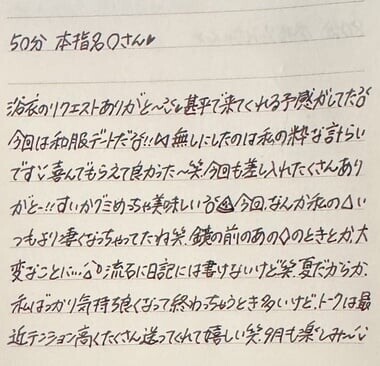 50分 本指名○さん♥
浴衣のリクエストありがと〜 甚平で来てくれる予感がしてた
今回は和服デートだ!! 無しにしたのは私の粋な計らい
です 喜んでもらえて良かった〜笑 今回も差し入れたくさんあり
がと〜!! すいかグミめっちゃ美味しい 今回、なんか私の△い
つもより凄くなっちゃってたね笑、鏡の前のあの◇のときとか、大
変なことに… 流石に日記には書けないけど笑、夏だからか、
私ばっかり気持ち良くなって終わっちゃうとき多いけど、トークは最
近テンション高くたくさん送ってくれて嬉しい笑、9月も楽しみ〜